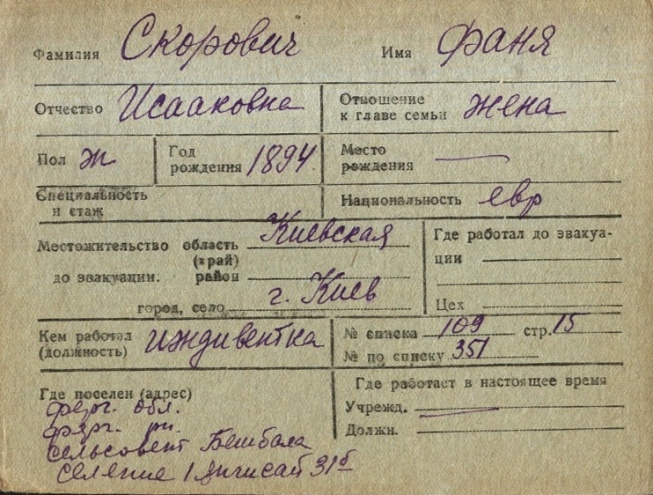 Фамилия Скорович Имя Фаня
Отчество Исааковна Отношение к главе семьи жена
Пол ж Год рождения 1894. Место рождения —
Специальность и стаж Национальность евр
Местожительство область Киевская Где работал до эвакуа-
(край) ции
до эвакуации. район
город, село г. Киев Цех
Кем работал № списка 109 стр. 15
(должность) иждивентка № по списку 351
Где поселен (адрес) Где работает в настоящее время
ферг. обл. Учрежд. —
ферг. рн. Должн.
сельсовет Бешбала
селение 31б